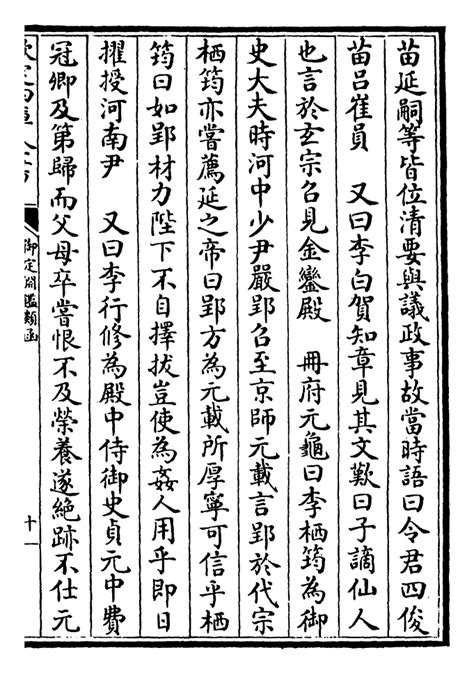 苗延嗣等皆位清要與議政事故當時語曰令君四俊
苗吕崔員　又曰李白賀知章見其文歎曰子謫仙人
也言於玄宗召見金鑾殿　冊府元龜曰李栖筠為御
史大夫時河中少尹嚴郢召至京師元載言郢於代宗
栖筠亦嘗薦延之帝曰郢方為元載所厚寧可信乎栖
筠曰如郢材力陛下不自擇拔豈使為姦人用乎即日
擢授河南尹　又曰李行修為殿中侍御史貞元中費
冠卿及第歸而父母卒嘗恨不及榮養遂絶跡不仕元
御定淵鑑類函
十一